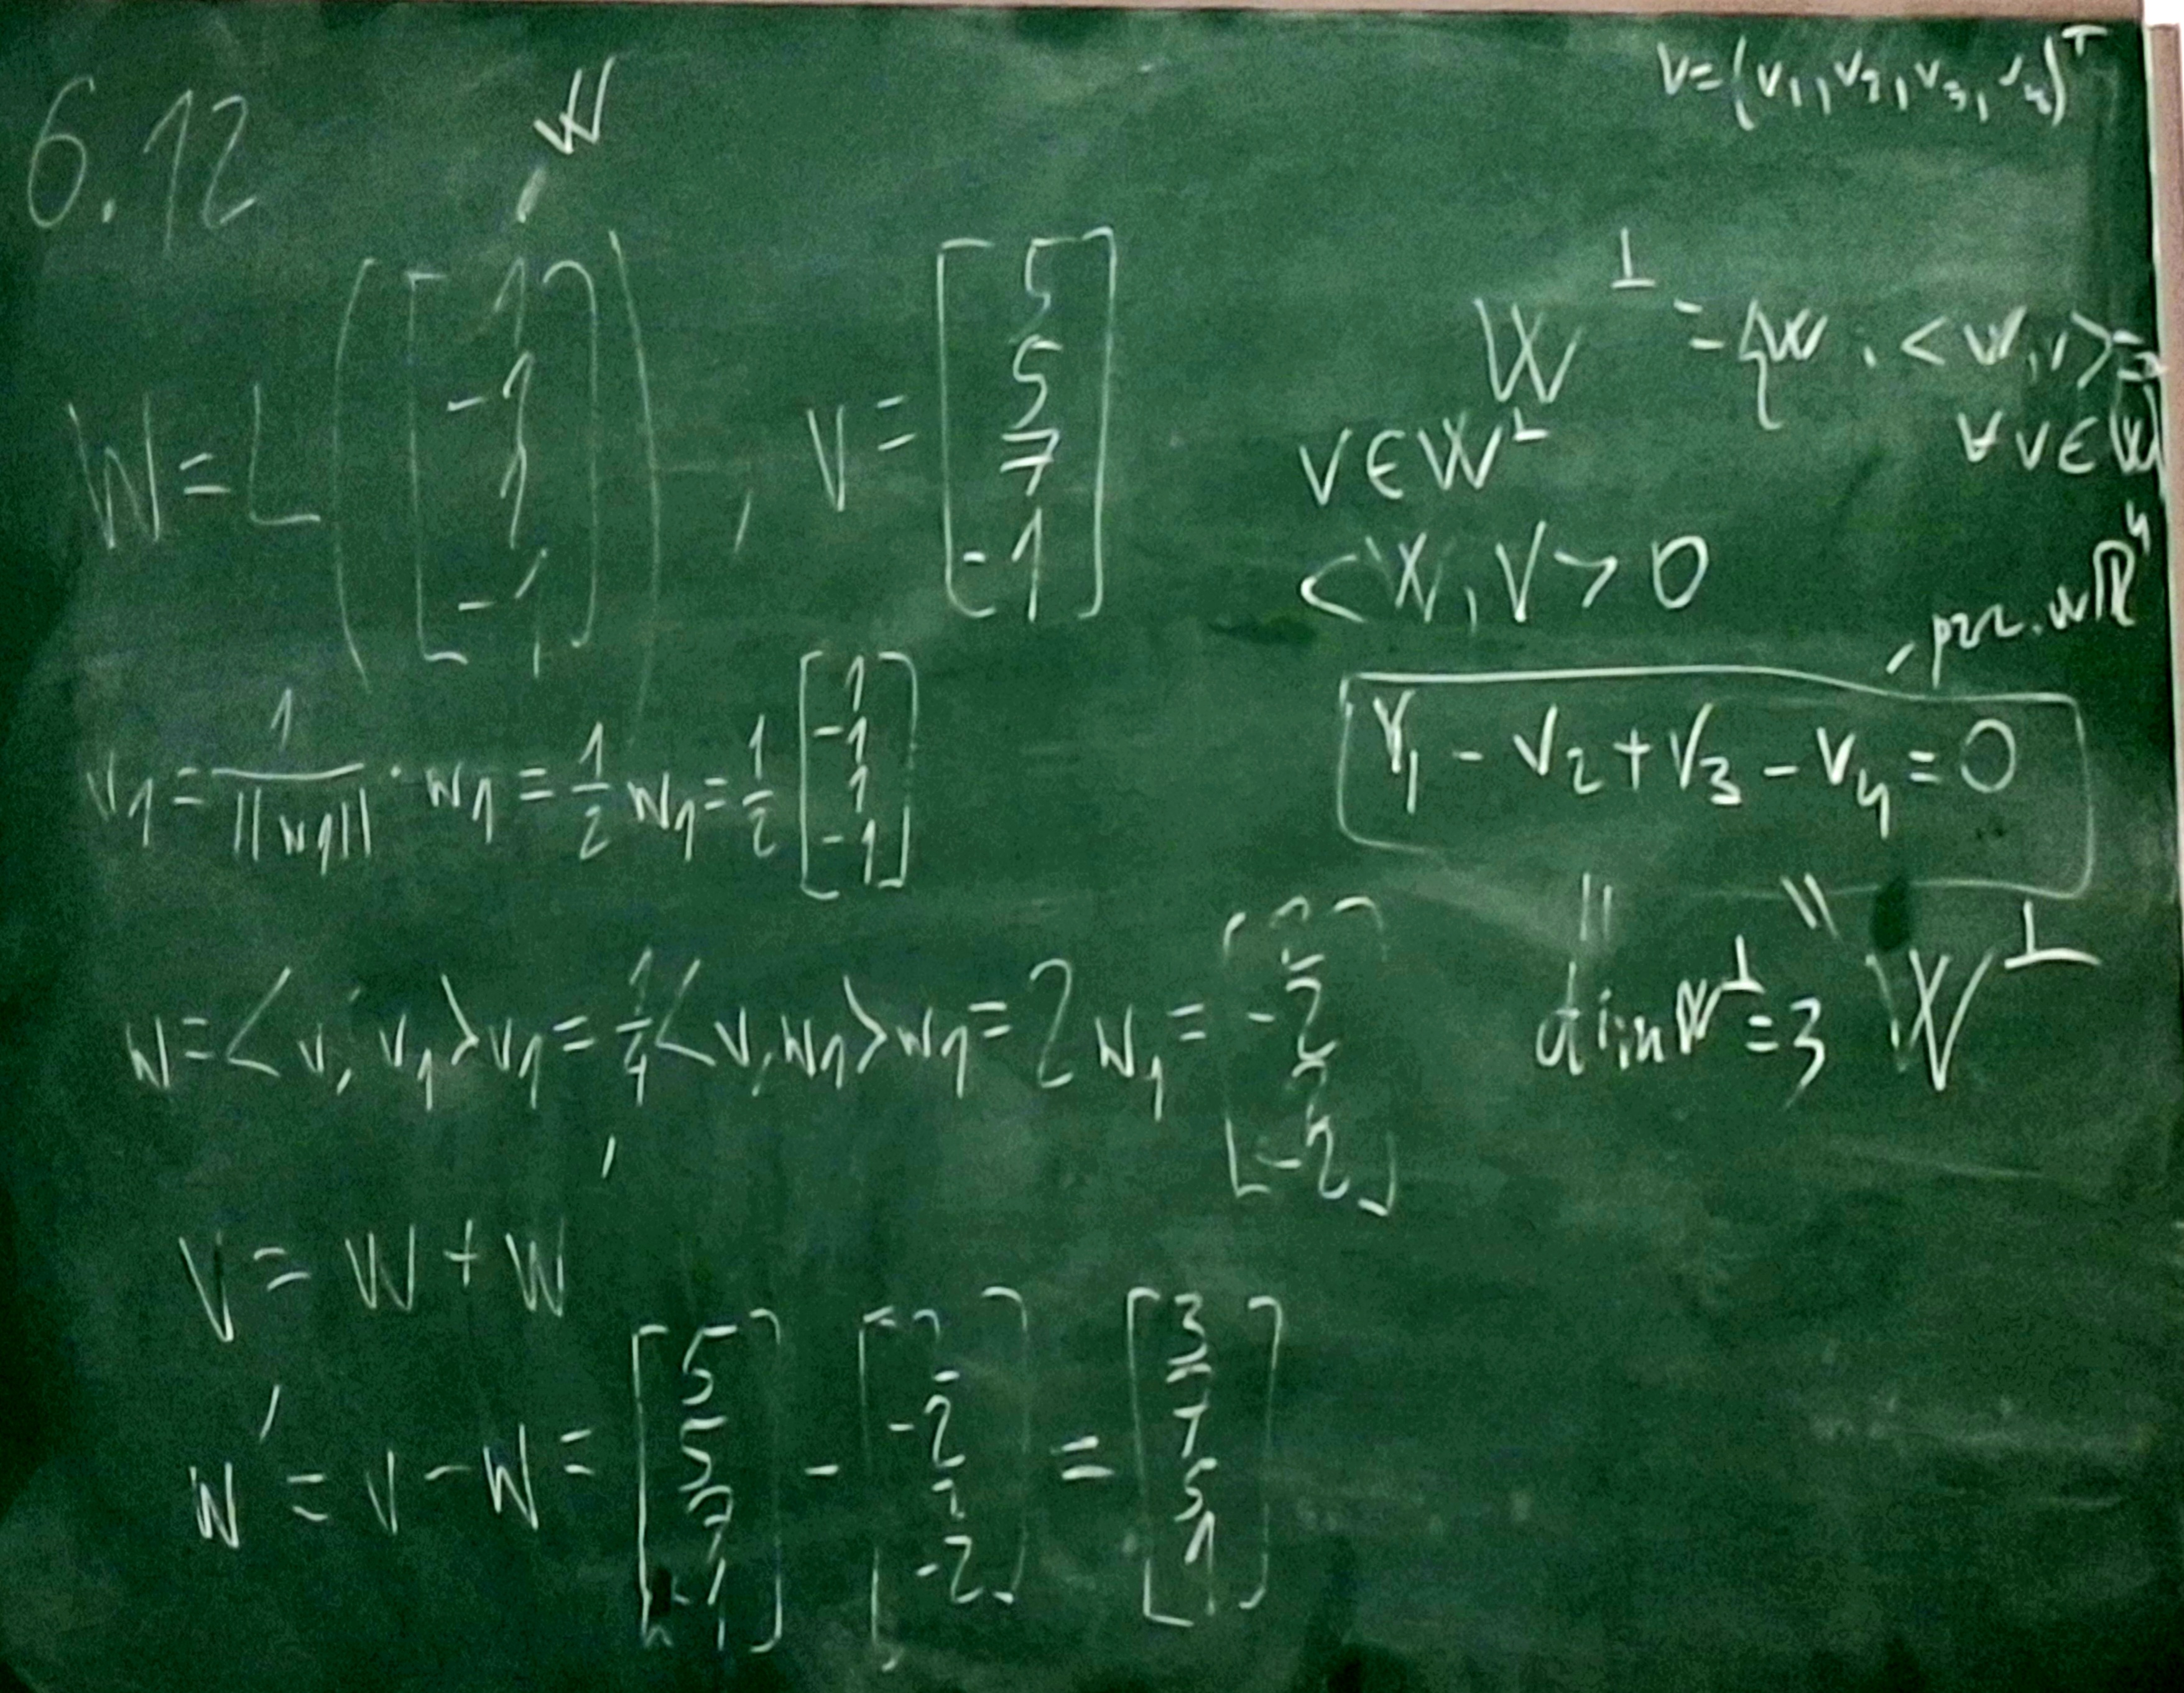 6.12
W
W = L ( [ 1 -1 1 -1 ] ) , V = [ 5 5 7 -1 ]
v1 = 1/||w1|| · w1 = 1/2 w1 = 1/2 [ 1 -1 1 -1 ]
w = < v, v1 > v1 = 1/4 < v, w1 > w1 = 2 w1 = [ 2 -2 2 -2 ]
V = W + W'
W' = V - W = [ 5 5 7 -1 ] - [ 2 -2 2 -2 ] = [ 3 7 5 1 ]
V = (V1, V2, V3, V4)^T
W^⊥ = { W : < W, V > =
∀ V ∈ W
V ∈ W^⊥
< W, V > 0
W R^4
V1 - V2 + V3 - V4 = 0
" "
dim W^⊥ = 3 W^⊥